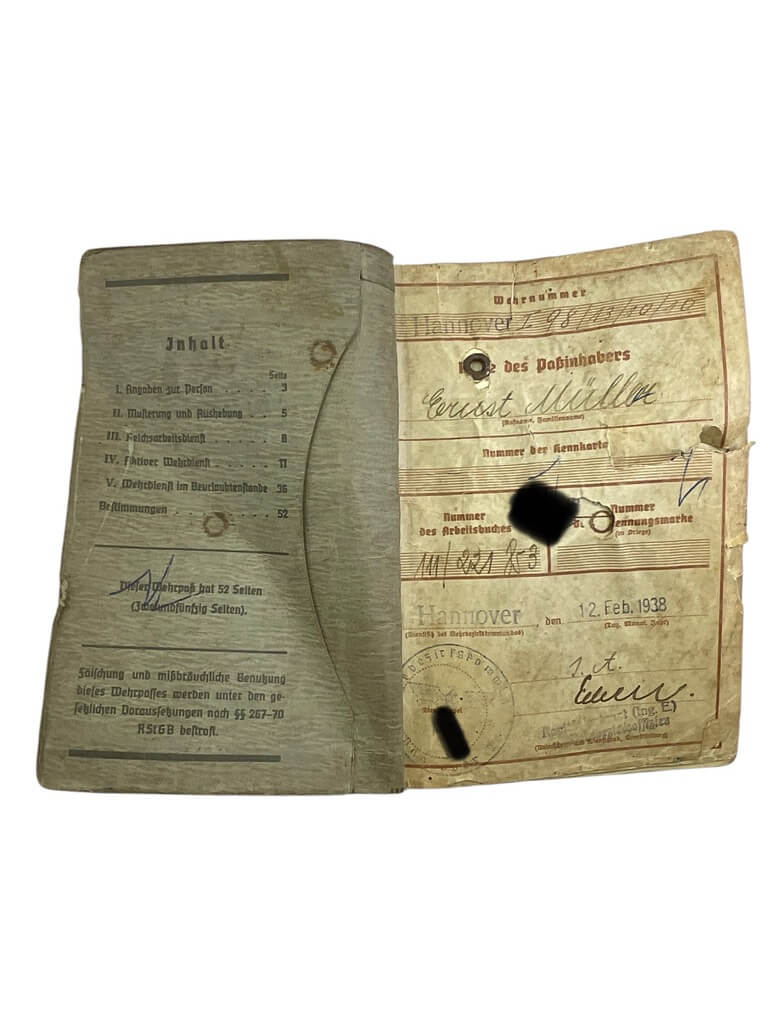 Inhalt
Seite
I. Angaben zur Person . . . . . 3
II. Musterung und Aushebung . . 5
III. Reichsarbeitsdienst . . . . . 8
IV. Aktiver Wehrdienst . . . . . 11
V. Wehrdienst im Beurlaubtenstande 36
Bestimmungen . . . . . . . . 52
Dieser Wehrpaß hat 52 Seiten
(Zweiundfünfzig Seiten).
Fälschung und mißbräuchliche Benutzung
dieses Wehrpasses werden unter den ge-
setzlichen Voraussetzungen nach §§ 267-70
RStGB bestraft.
Wehrnummer
Hannover I 98/13/10/10
des Paßinhabers
Ernst Müller
(Rufname, Familienname)
Nummer der Kennkarte
Nummer
des Arbeitsbuches
Nummer
Kennungsmarke
(im Kriege)
111/221 853
Hannover, den 12. Feb. 1938
(Dienstsitz des Wehrbezirkskommandos)
(Tag, Monat, Jahr)
I. A.